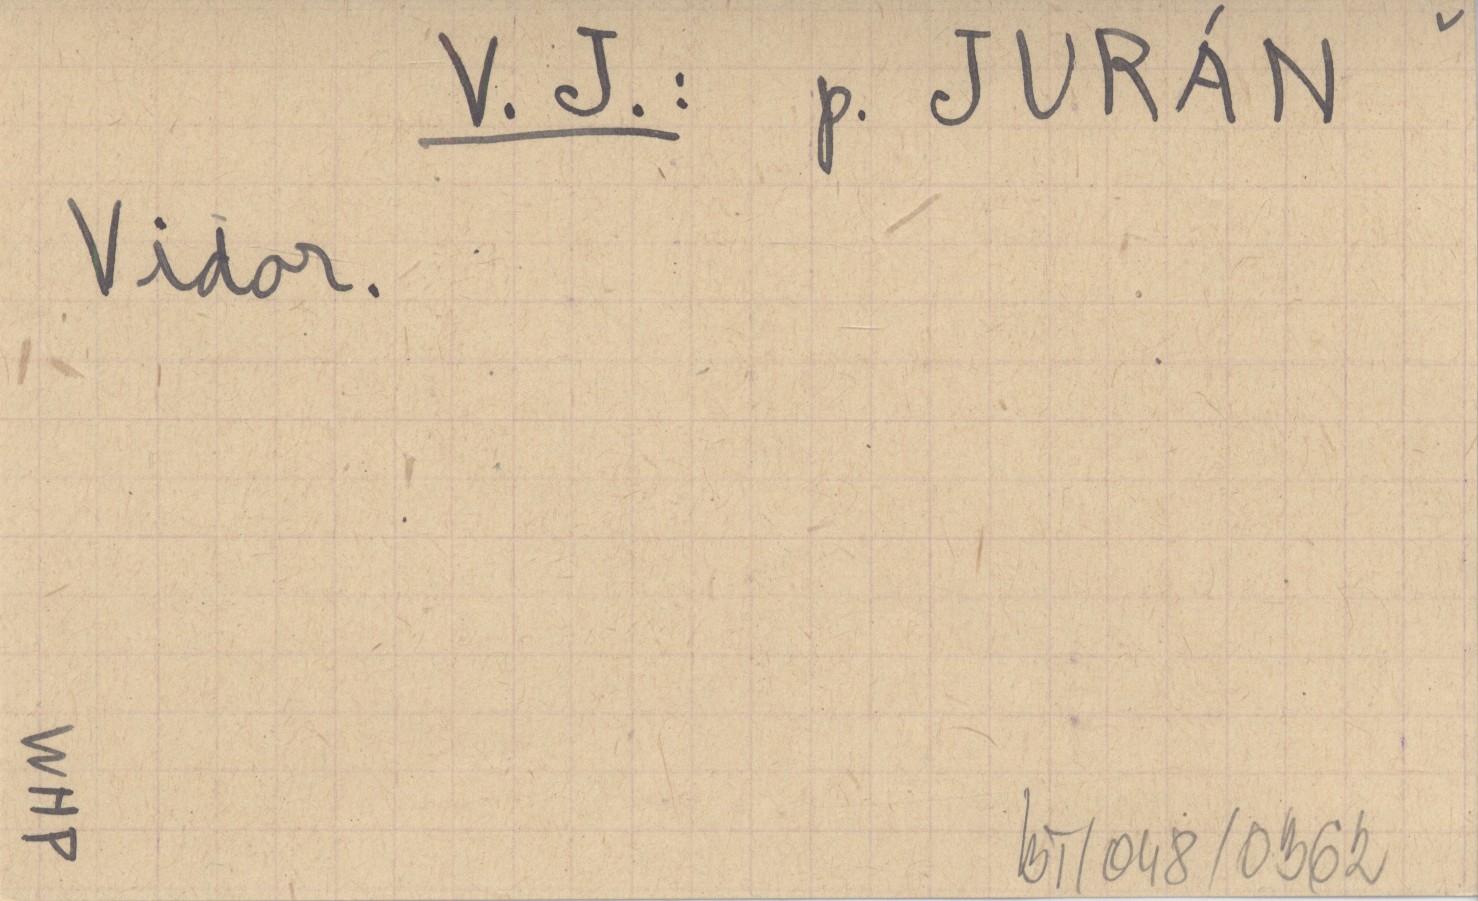 V. J.: p. JURÁN
Vidor.
WHP
BT/048/0362